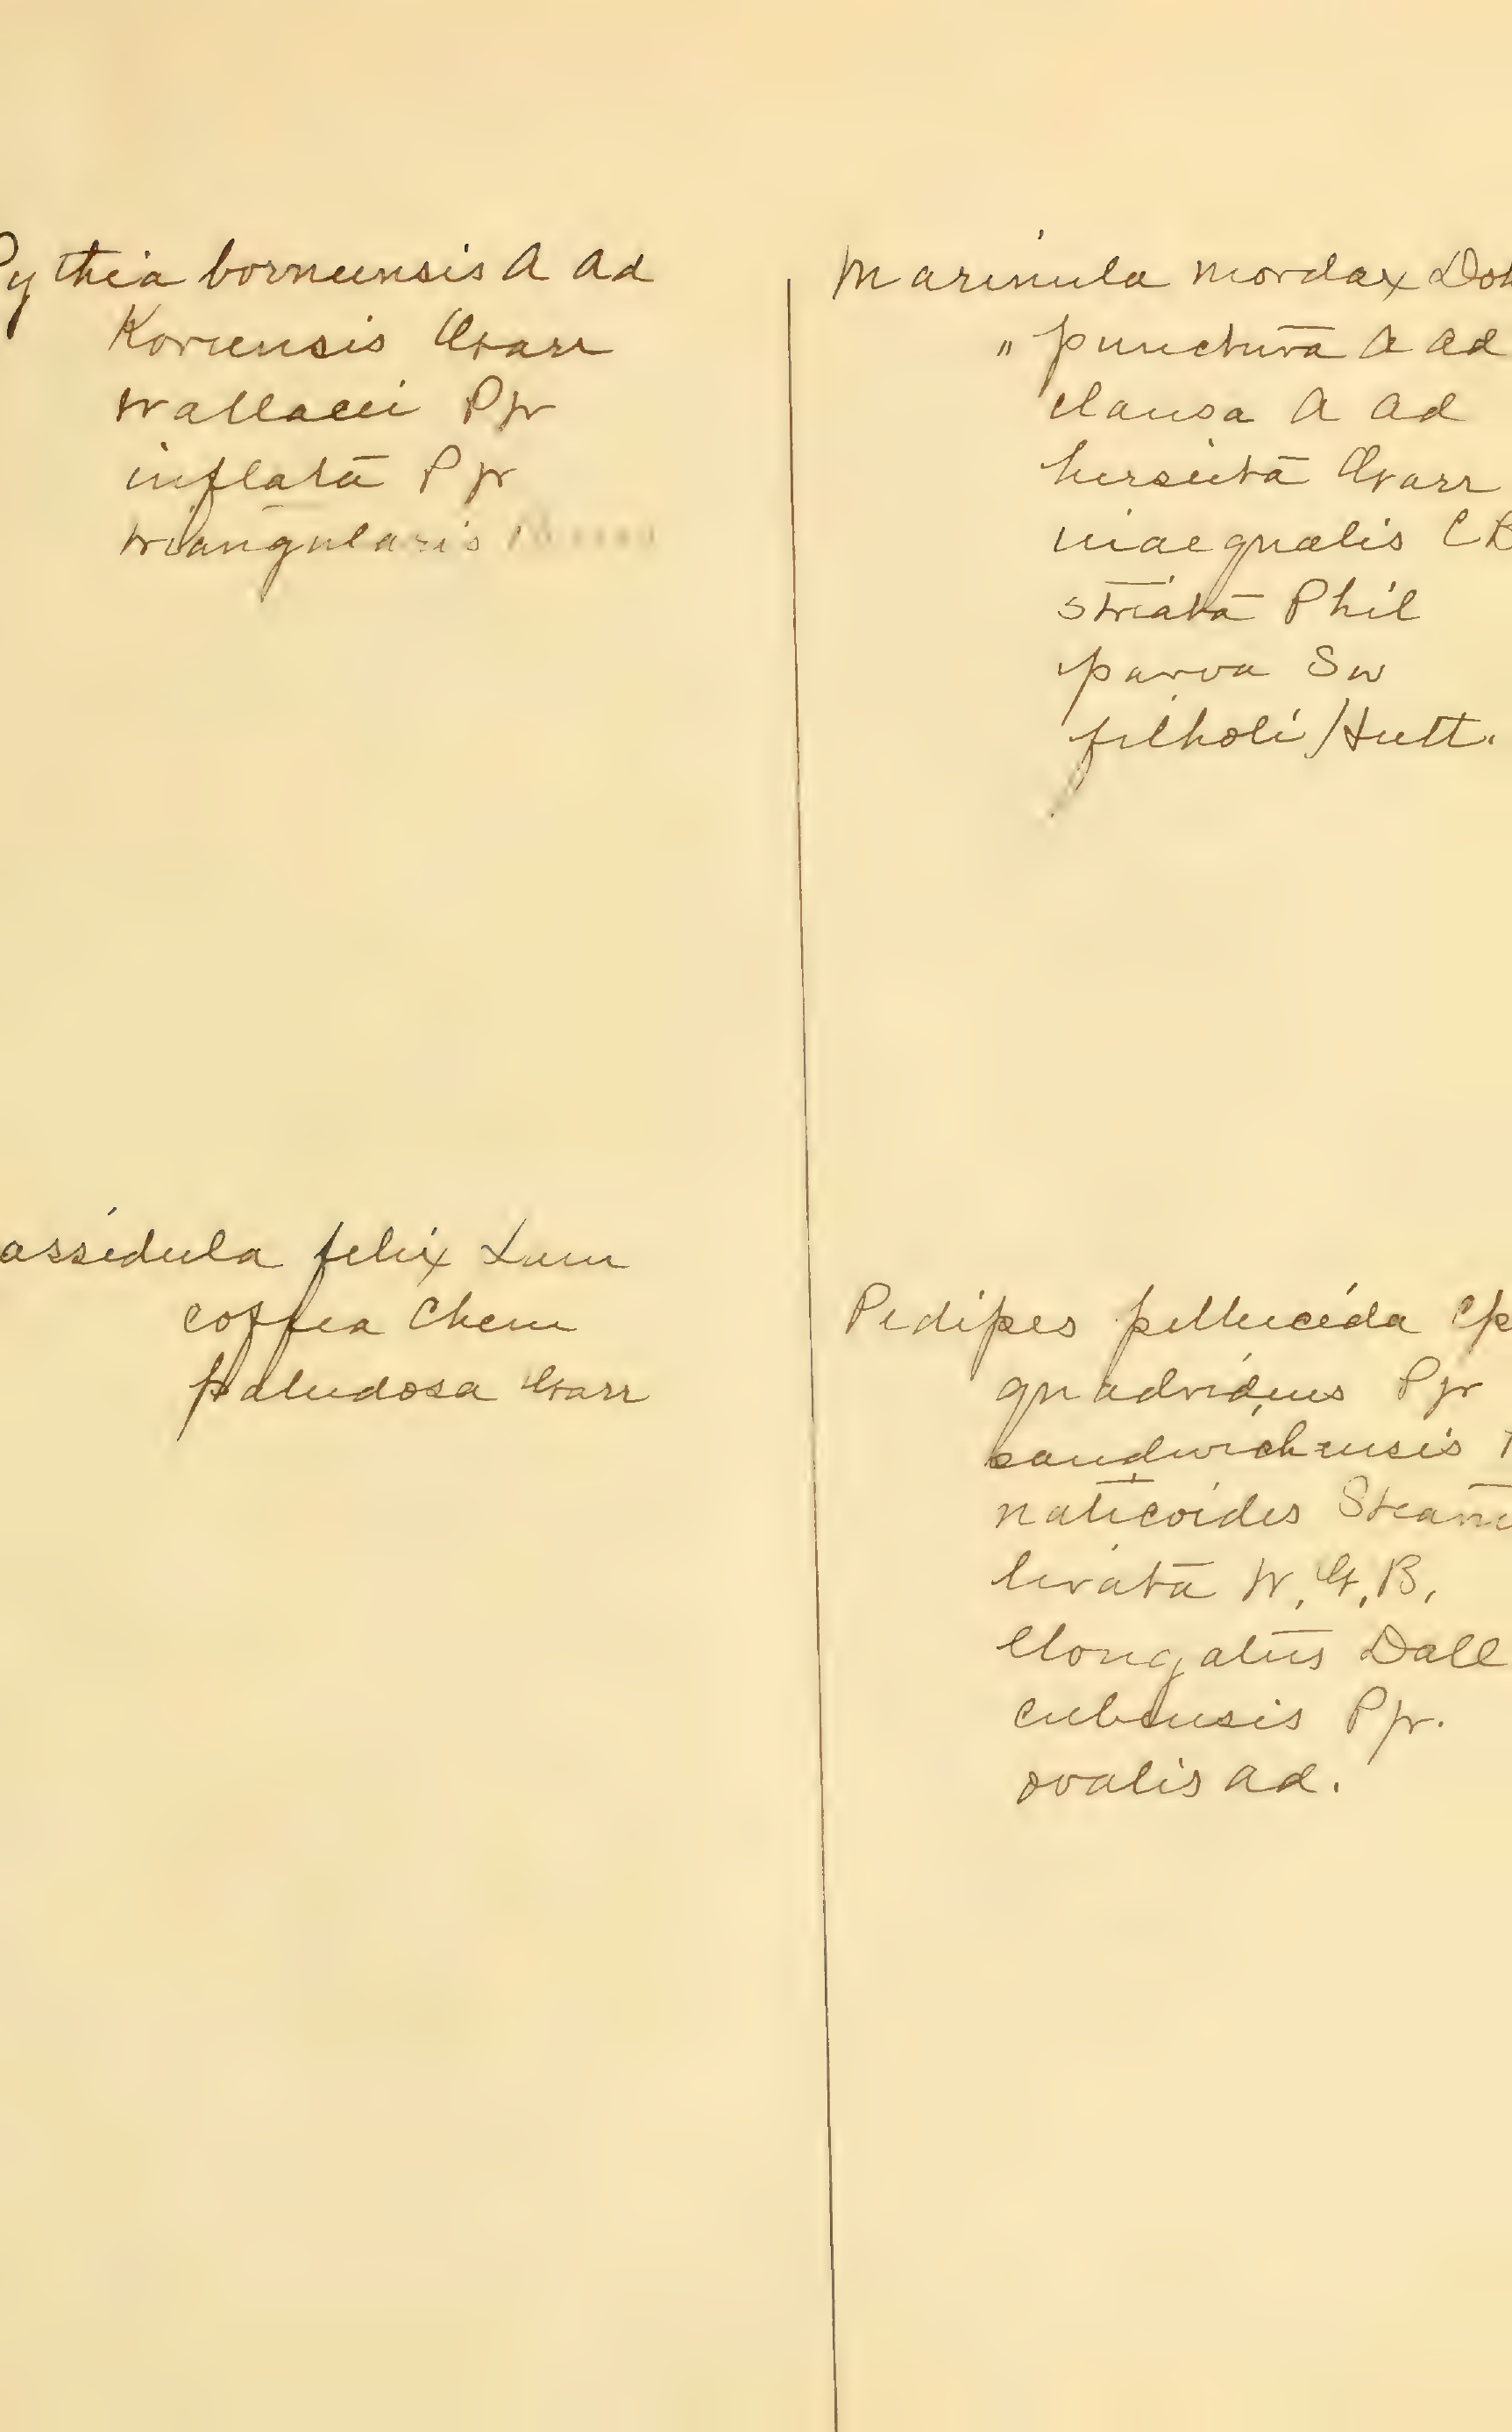 Pythia borneensis A Ad
Koreensis Garr
Wallacei Pfr
inflata Pfr
triangularis
assidula felix Lam
coffea Chem
paludosa Garr
Marinula mordax Doh
" punctura A Ad
clausa A Ad
hirsuta Garr
inaequalis CB
striata Phil
parva Sw
filholi Hutt.
Pedipes pellucida Cp
quadridens Pfr
sandwichensis
naticoides Stearn
lirata W. G. B.
Elongatus Dall
cubensis Pfr.
ovalis Ad.